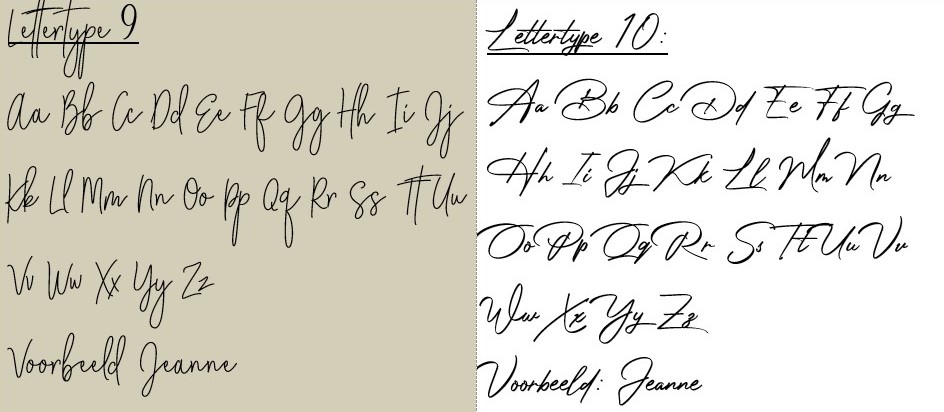 Lettertype 9
Aa Bb Cc Dd Ee Ff Gg Hh Ii Jj
Kk Ll Mm Nn Oo Pp Qq Rr Ss Tt Uu
Vv Ww Xx Yy Zz
Voorbeeld Jeanne
Lettertype 10:
Aa Bb Cc Dd Ee Ff Gg
Hh Ii Jj Kk Ll Mm Nn
Oo Pp Qq Rr Ss Tt Uu Vv
Ww Xx Yy Zz
Voorbeeld: Jeanne